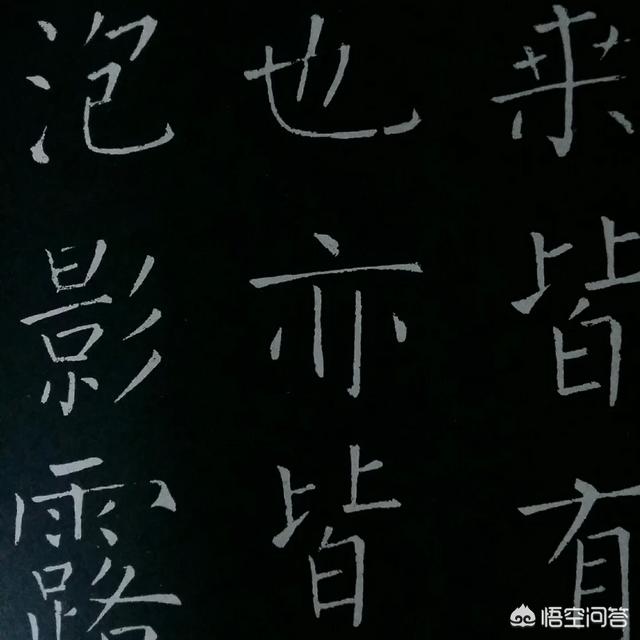 来皆有
也亦皆
泡影露
悟空问答